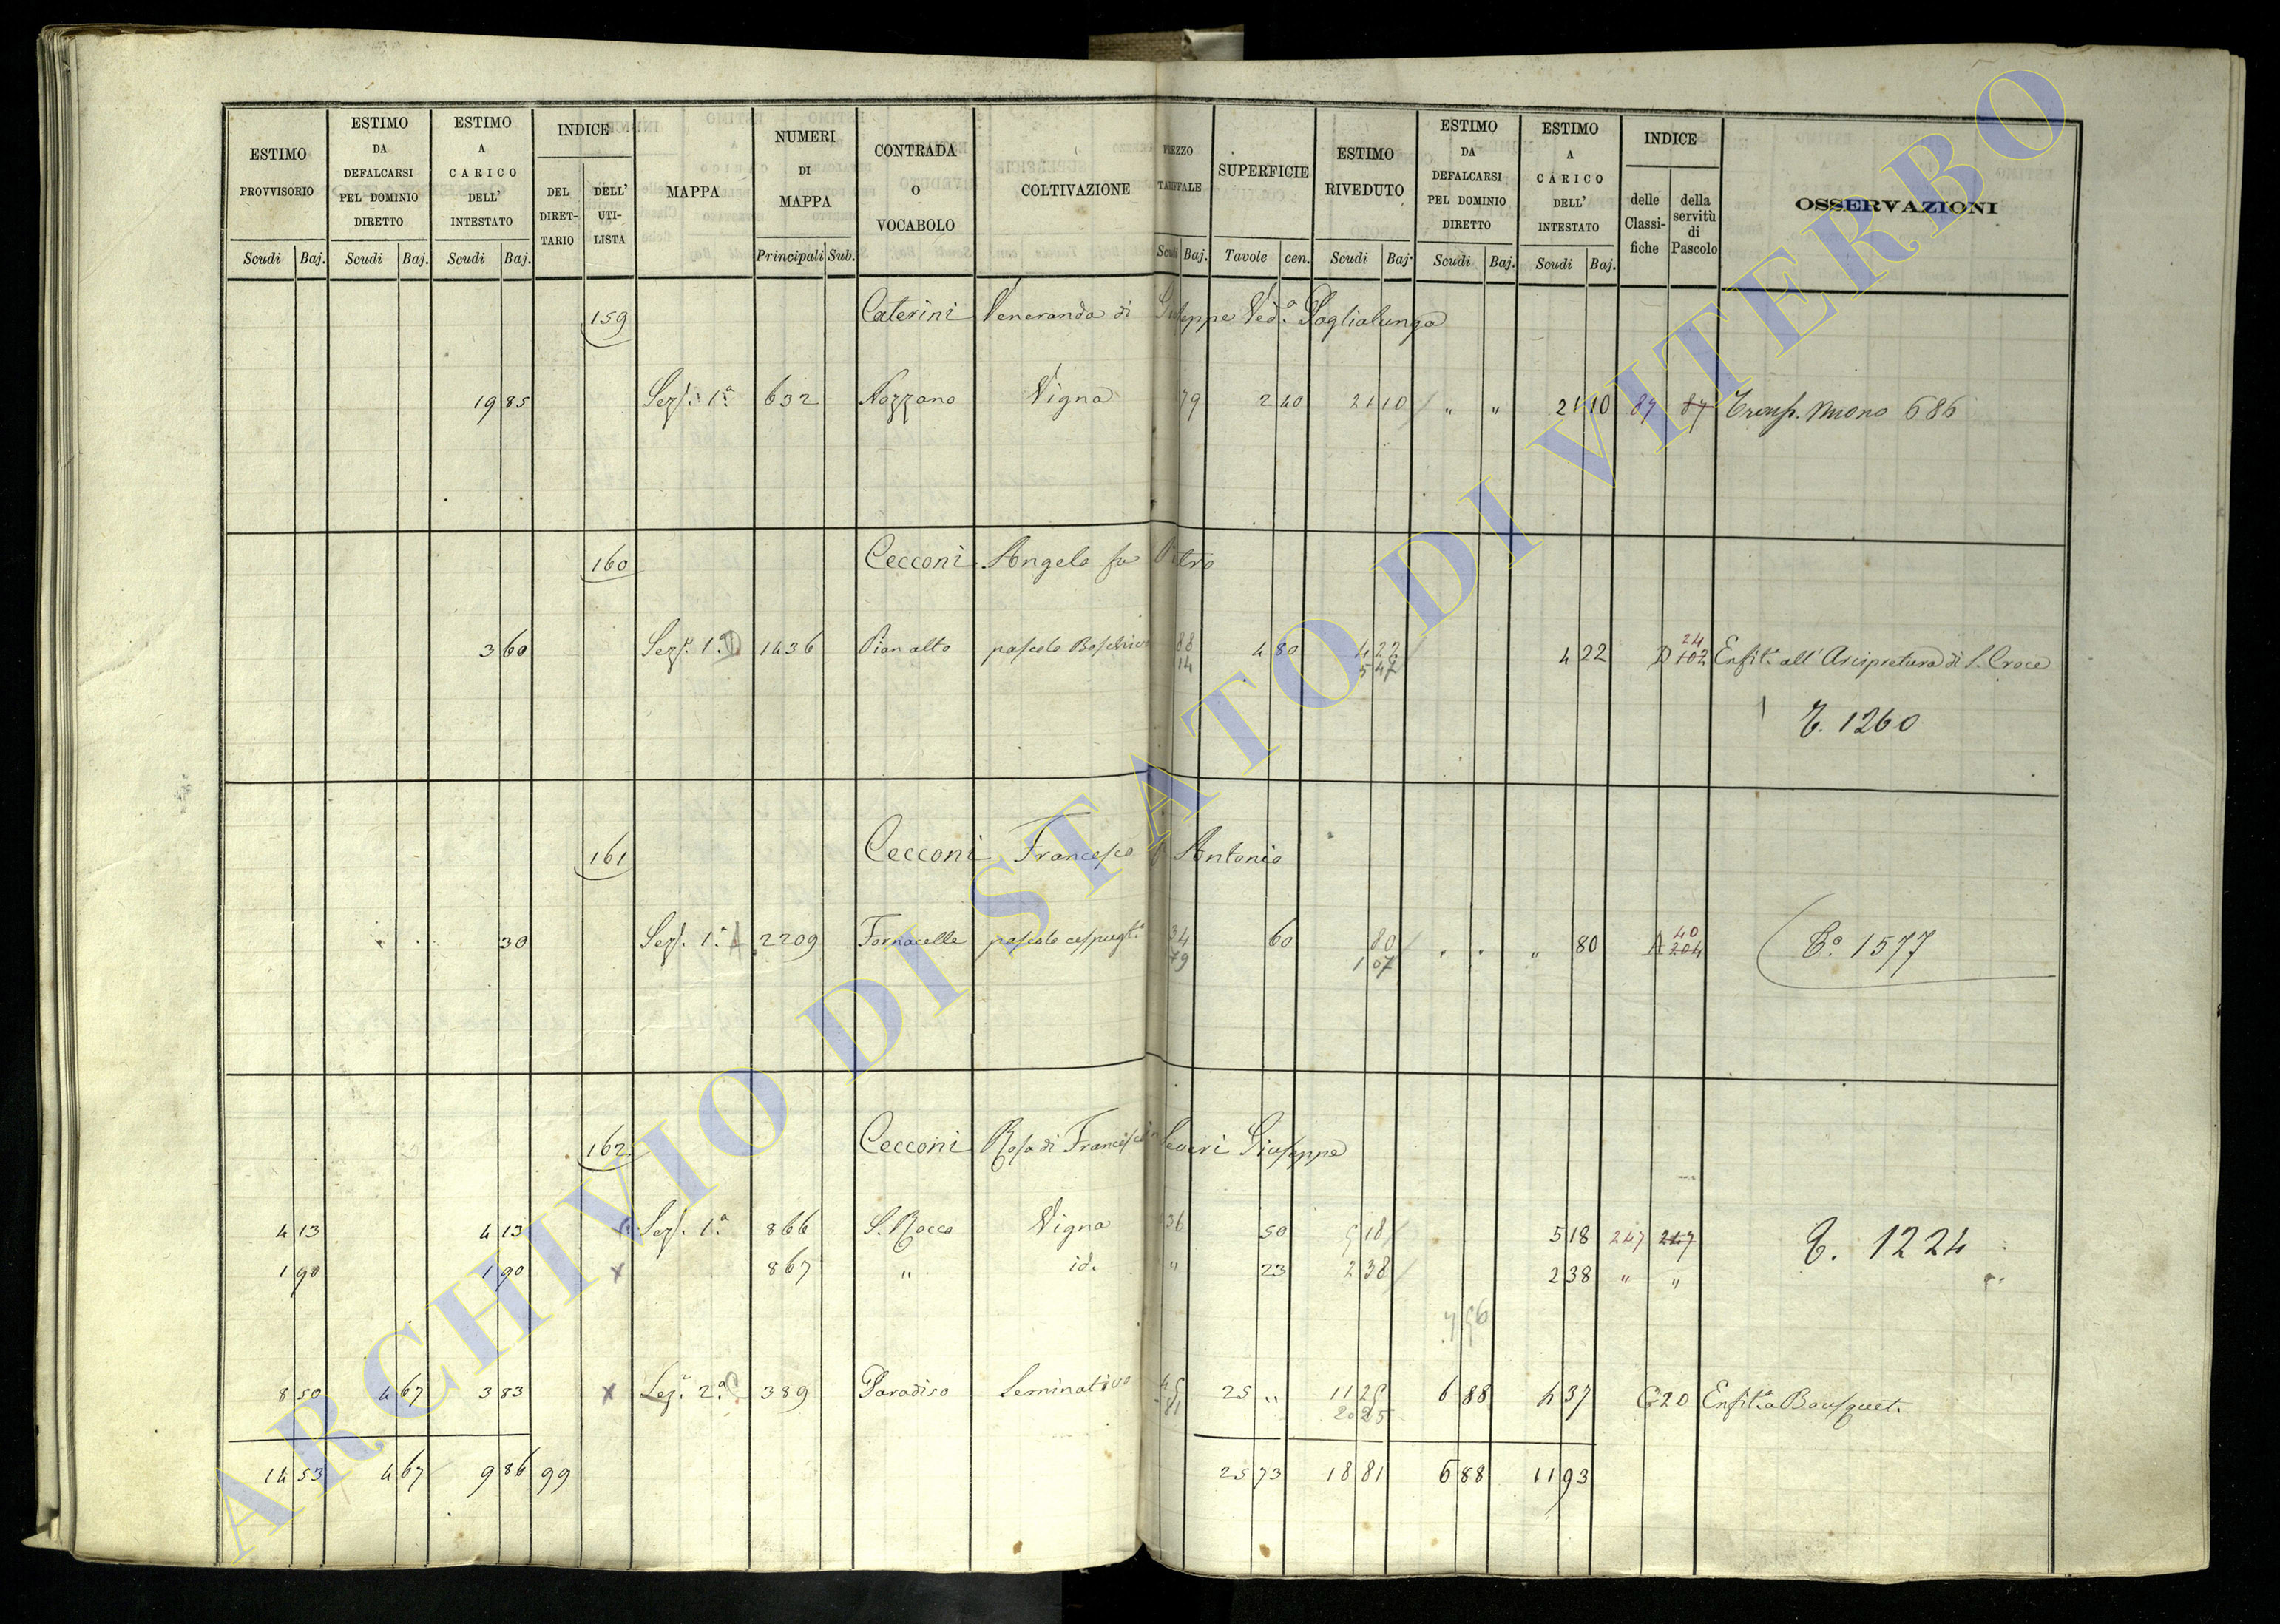 ESTIMO PROVVISORIO
Scudi Baj.
ESTIMO DA DEFALCARSI PEL DOMINIO DIRETTO
Scudi Baj.
ESTIMO A CARICO DELL' INTESTATO
Scudi Baj.
INDICE
DEL DIRET- TARIO
DELL' UTI- LISTA
MAPPA
NUMERI DI MAPPA
Principali Sub.
CONTRADA O VOCABOLO
COLTIVAZIONE
PREZZO TARIFFALE
Scudi Baj.
SUPERFICIE
Tavole cen.
ESTIMO RIVEDUTO
Scudi Baj.
ESTIMO DA DEFALCARSI PEL DOMINIO DIRETTO
Scudi Baj.
ESTIMO A CARICO DELL' INTESTATO
Scudi Baj.
INDICE
delle Classi- fiche
della servitù di Pascolo
OSSERVAZIONI
159 Caterini Veneranda di Giuseppe Ved.a Paglialunga
19 85 Sez. 1.a 632 Nozzano Vigna 79 2 40 21 10 " " 21 10 87 87 Trasp. nuono 686
160 Cecconi Angelo fu Pietro
3 60 Sez. 1.a D 1436 Pian alto pascolo Boschivo 88 4 80 4 22 4 22 D 24 102 Enfit.a all' Arcipretura di S. Croce
14 5 47
T. 1260
161 Cecconi Francesco Antonio
30 Sez. 1.a A 2209 Fornacelle pascolo cespugl.o 34 60 80 " " " 80 A 40 204 T.o 1577
79 1 07
162 Cecconi Rosa di Francesco in Severi Giuseppe
4 13 4 13 x Sez. 1.a 866 S. Rocco Vigna 36 50 5 18 5 18 247 247 T. 1224
1 90 1 90 x 867 " id. " 23 2 38 2 38 " "
7 56
8 50 4 67 3 83 x Sez. 2.a C 389 Paradiso Seminativo 45 25 " 11 25 6 88 4 37 C 20 Enfit.a a Bousquet.
81 20 25
14 53 4 67 9 86 99 25 73 18 81 6 88 11 93
ARCHIVIO DI STATO DI VITERBO